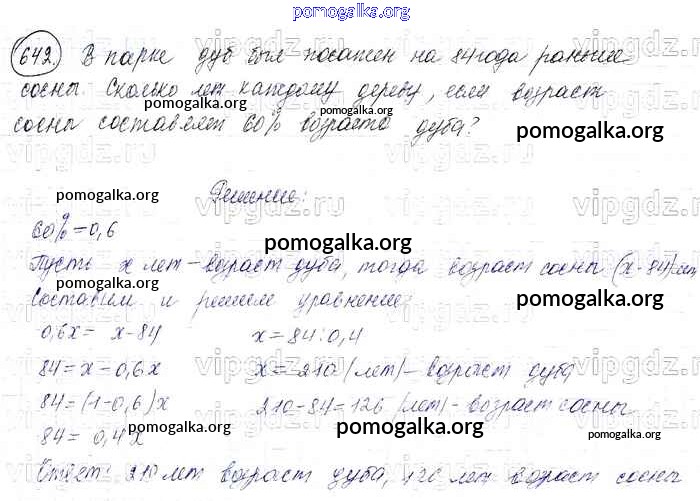 pomogalka.org
642. В парке дуб был посажен на 84 года раньше
сосны. Сколько лет каждому дереву, если возраст
pomogalka.org pomogalka.org
сосны составляет 60% возраста дуба?
pomogalka.org
vipgdz.ru vipgdz.ru vipgdz.ru
pomogalka.org Решение: pomogalka.org
60%=0,6
pomogalka.org
Пусть x лет – возраст дуба, тогда возраст сосны (x-84) лет
Составим и решим уравнение:
pomogalka.org pomogalka.org
0,6x = x-84 x = 84:0,4
84 = x - 0,6x x = 210 (лет) – возраст дуба
84 = (1-0,6)x 210-84=126 (лет) – возраст сосны
84 = 0,4x
pomogalka.org pomogalka.org pomogalka.org
Ответ: 210 лет возраст дуба, 126 лет возраст сосны